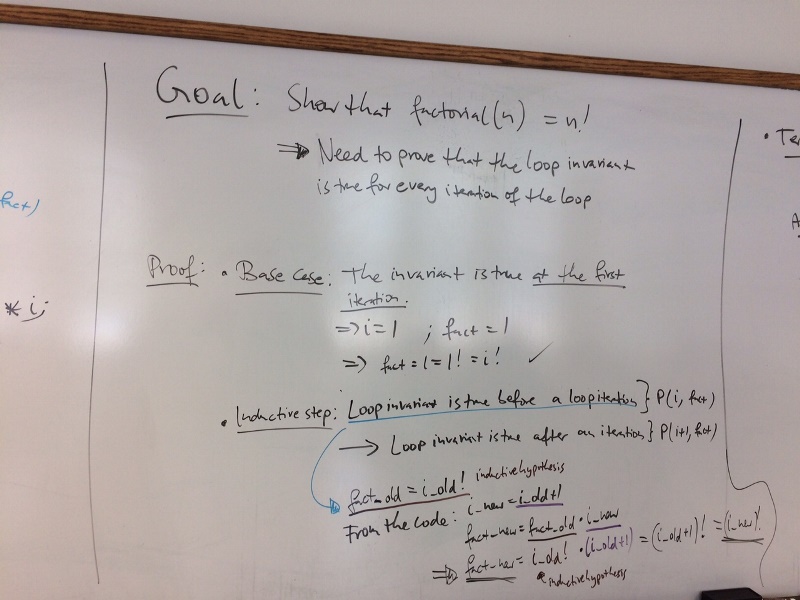 fact)
* i;
Goal: Show that factorial(n) = n!
⇒ Need to prove that the loop invariant
is true for every iteration of the loop
Proof: • Base case: The invariant is true at the first
iteration.
⇒ i = 1 ; fact = 1
⇒ fact = 1 = 1! = i! ✓
• Inductive step: Loop invariant is true before a loop iteration } P(i, fact)
→ Loop invariant is true after an iteration } P(i+1, fact)
fact_old = i_old! inductive hypothesis
From the code: i_new = i_old+1
fact_new = fact_old · i_new
⇒ fact_new = i_old! · (i_old+1) = (i_old+1)! = (i_new)!
inductive hypothesis